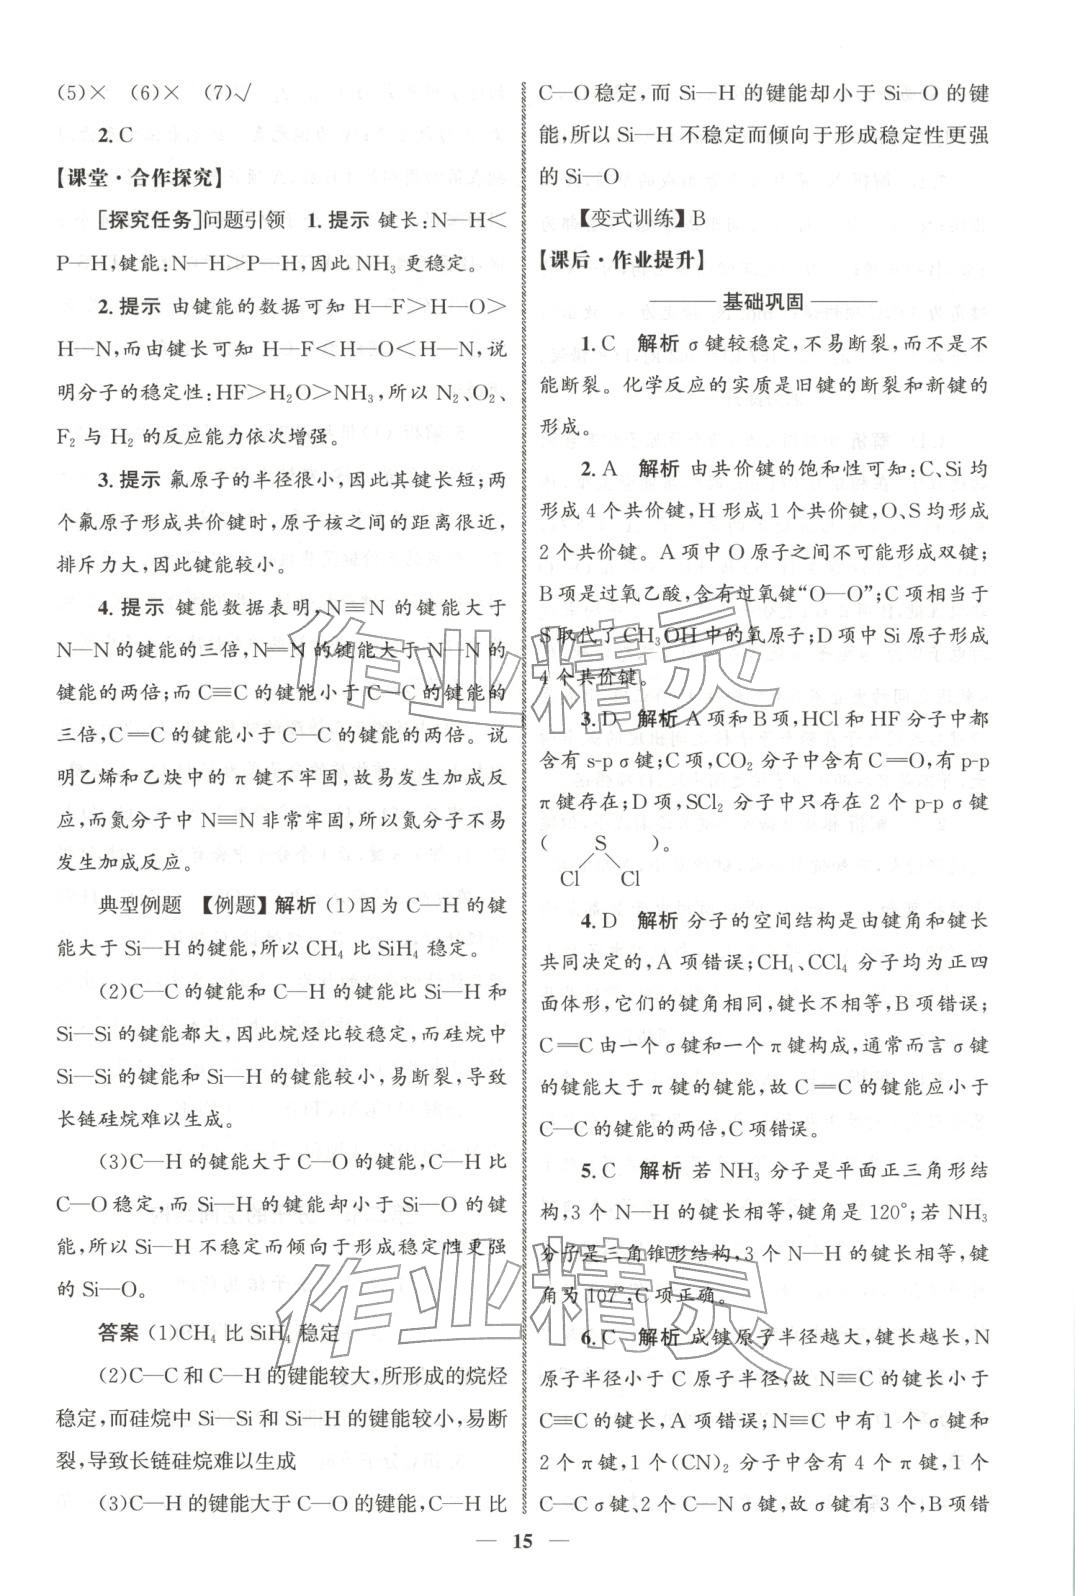 (5)×　(6)×　(7)√
2. C
【课堂·合作探究】
[探究任务]问题引领　1. 提示　键长:N—H<
P—H,键能:N—H>P—H,因此 NH₃ 更稳定。
2. 提示　由键能的数据可知 H—F>H—O>
H—N,而由键长可知 H—F<H—O<H—N,说
明分子的稳定性:HF>H₂O>NH₃,所以 N₂、O₂、
F₂ 与 H₂ 的反应能力依次增强。
3. 提示　氟原子的半径很小,因此其键长短;两
个氟原子形成共价键时,原子核之间的距离很近,
排斥力大,因此键能较小。
4. 提示　键能数据表明,N≡N 的键能大于
N—N 的键能的三倍,N═N 的键能大于 N—N 的
键能的两倍;而 C≡C 的键能小于 C—C 的键能的
三倍,C═C 的键能小于 C—C 的键能的两倍。说
明乙烯和乙炔中的 π 键不牢固,故易发生加成反
应,而氮分子中 N≡N 非常牢固,所以氮分子不易
发生加成反应。
典型例题　【例题】解析 (1)因为 C—H 的键
能大于 Si—H 的键能,所以 CH₄ 比 SiH₄ 稳定。
(2)C—C 的键能和 C—H 的键能比 Si—H 和
Si—Si 的键能都大,因此烷烃比较稳定,而硅烷中
Si—Si 的键能和 Si—H 的键能较小,易断裂,导致
长链硅烷难以生成。
(3)C—H 的键能大于 C—O 的键能,C—H 比
C—O 稳定,而 Si—H 的键能却小于 Si—O 的键
能,所以 Si—H 不稳定而倾向于形成稳定性更强的
Si—O。
答案 (1)CH₄ 比 SiH₄ 稳定
(2)C—C 和 C—H 的键能较大,所形成的烷烃
稳定,而硅烷中 Si—Si 和 Si—H 的键能较小,易断
裂,导致长链硅烷难以生成
(3)C—H 的键能大于 C—O 的键能,C—H 比
C—O 稳定,而 Si—H 的键能却小于 Si—O 的键
能,所以 Si—H 不稳定而倾向于形成稳定性更强
的 Si—O
【变式训练】B
【课后·作业提升】
基础巩固
1. C　解析　σ 键较稳定,不易断裂,而不是不
能断裂。化学反应的实质是旧键的断裂和新键的
形成。
2. A　解析　由共价键的饱和性可知:C、Si 均
形成 4 个共价键,H 形成 1 个共价键,O、S 均形成
2 个共价键。A 项中 O 原子之间不可能形成双键;
B 项是过氧乙酸,含有过氧键“O—O”;C 项相当于
S 取代了 CH₃OH 中的氧原子;D 项中 Si 原子形成
4 个共价键。
3. D　解析 A 项和 B 项,HCl 和 HF 分子中都
含有 s-p σ 键;C 项,CO₂ 分子中含有 C═O,有 p-p
π 键存在;D 项,SCl₂ 分子中只存在 2 个 p-p σ 键
(　S　)。
Cl　Cl
4. D　解析　分子的空间结构是由键角和键长
共同决定的,A 项错误;CH₄、CCl₄ 分子均为正四
面体形,它们的键角相同,键长不相等,B 项错误;
C═C 由一个 σ 键和一个 π 键构成,通常而言 σ 键
的键能大于 π 键的键能,故 C═C 的键能应小于
C—C 的键能的两倍,C 项错误。
5. C　解析　若 NH₃ 分子是平面正三角形结
构,3 个 N—H 的键长相等,键角是 120°;若 NH₃
分子是三角锥形结构,3 个 N—H 的键长相等,键
角为 107°,C 项正确。
6. C　解析　成键原子半径越大,键长越长,N
原子半径小于 C 原子半径,故 N≡C 的键长小于
C≡C 的键长,A 项错误;N≡C 中有 1 个 σ 键和
2 个 π 键,1 个(CN)₂ 分子中含有 4 个 π 键,1 个
C—C σ 键、2 个 C—N σ 键,故 σ 键有 3 个,B 项错
— 15 —
作业精灵
作业精灵